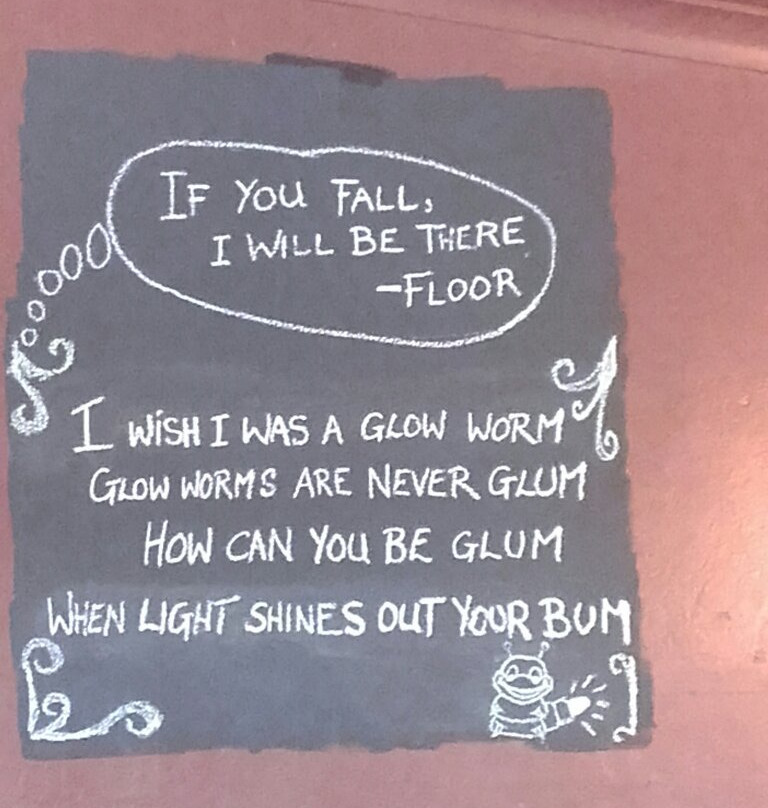 If you fall,
I will be there
-Floor
I wish I was a glow worm
Glow worms are never glum
How can you be glum
When light shines out your bum